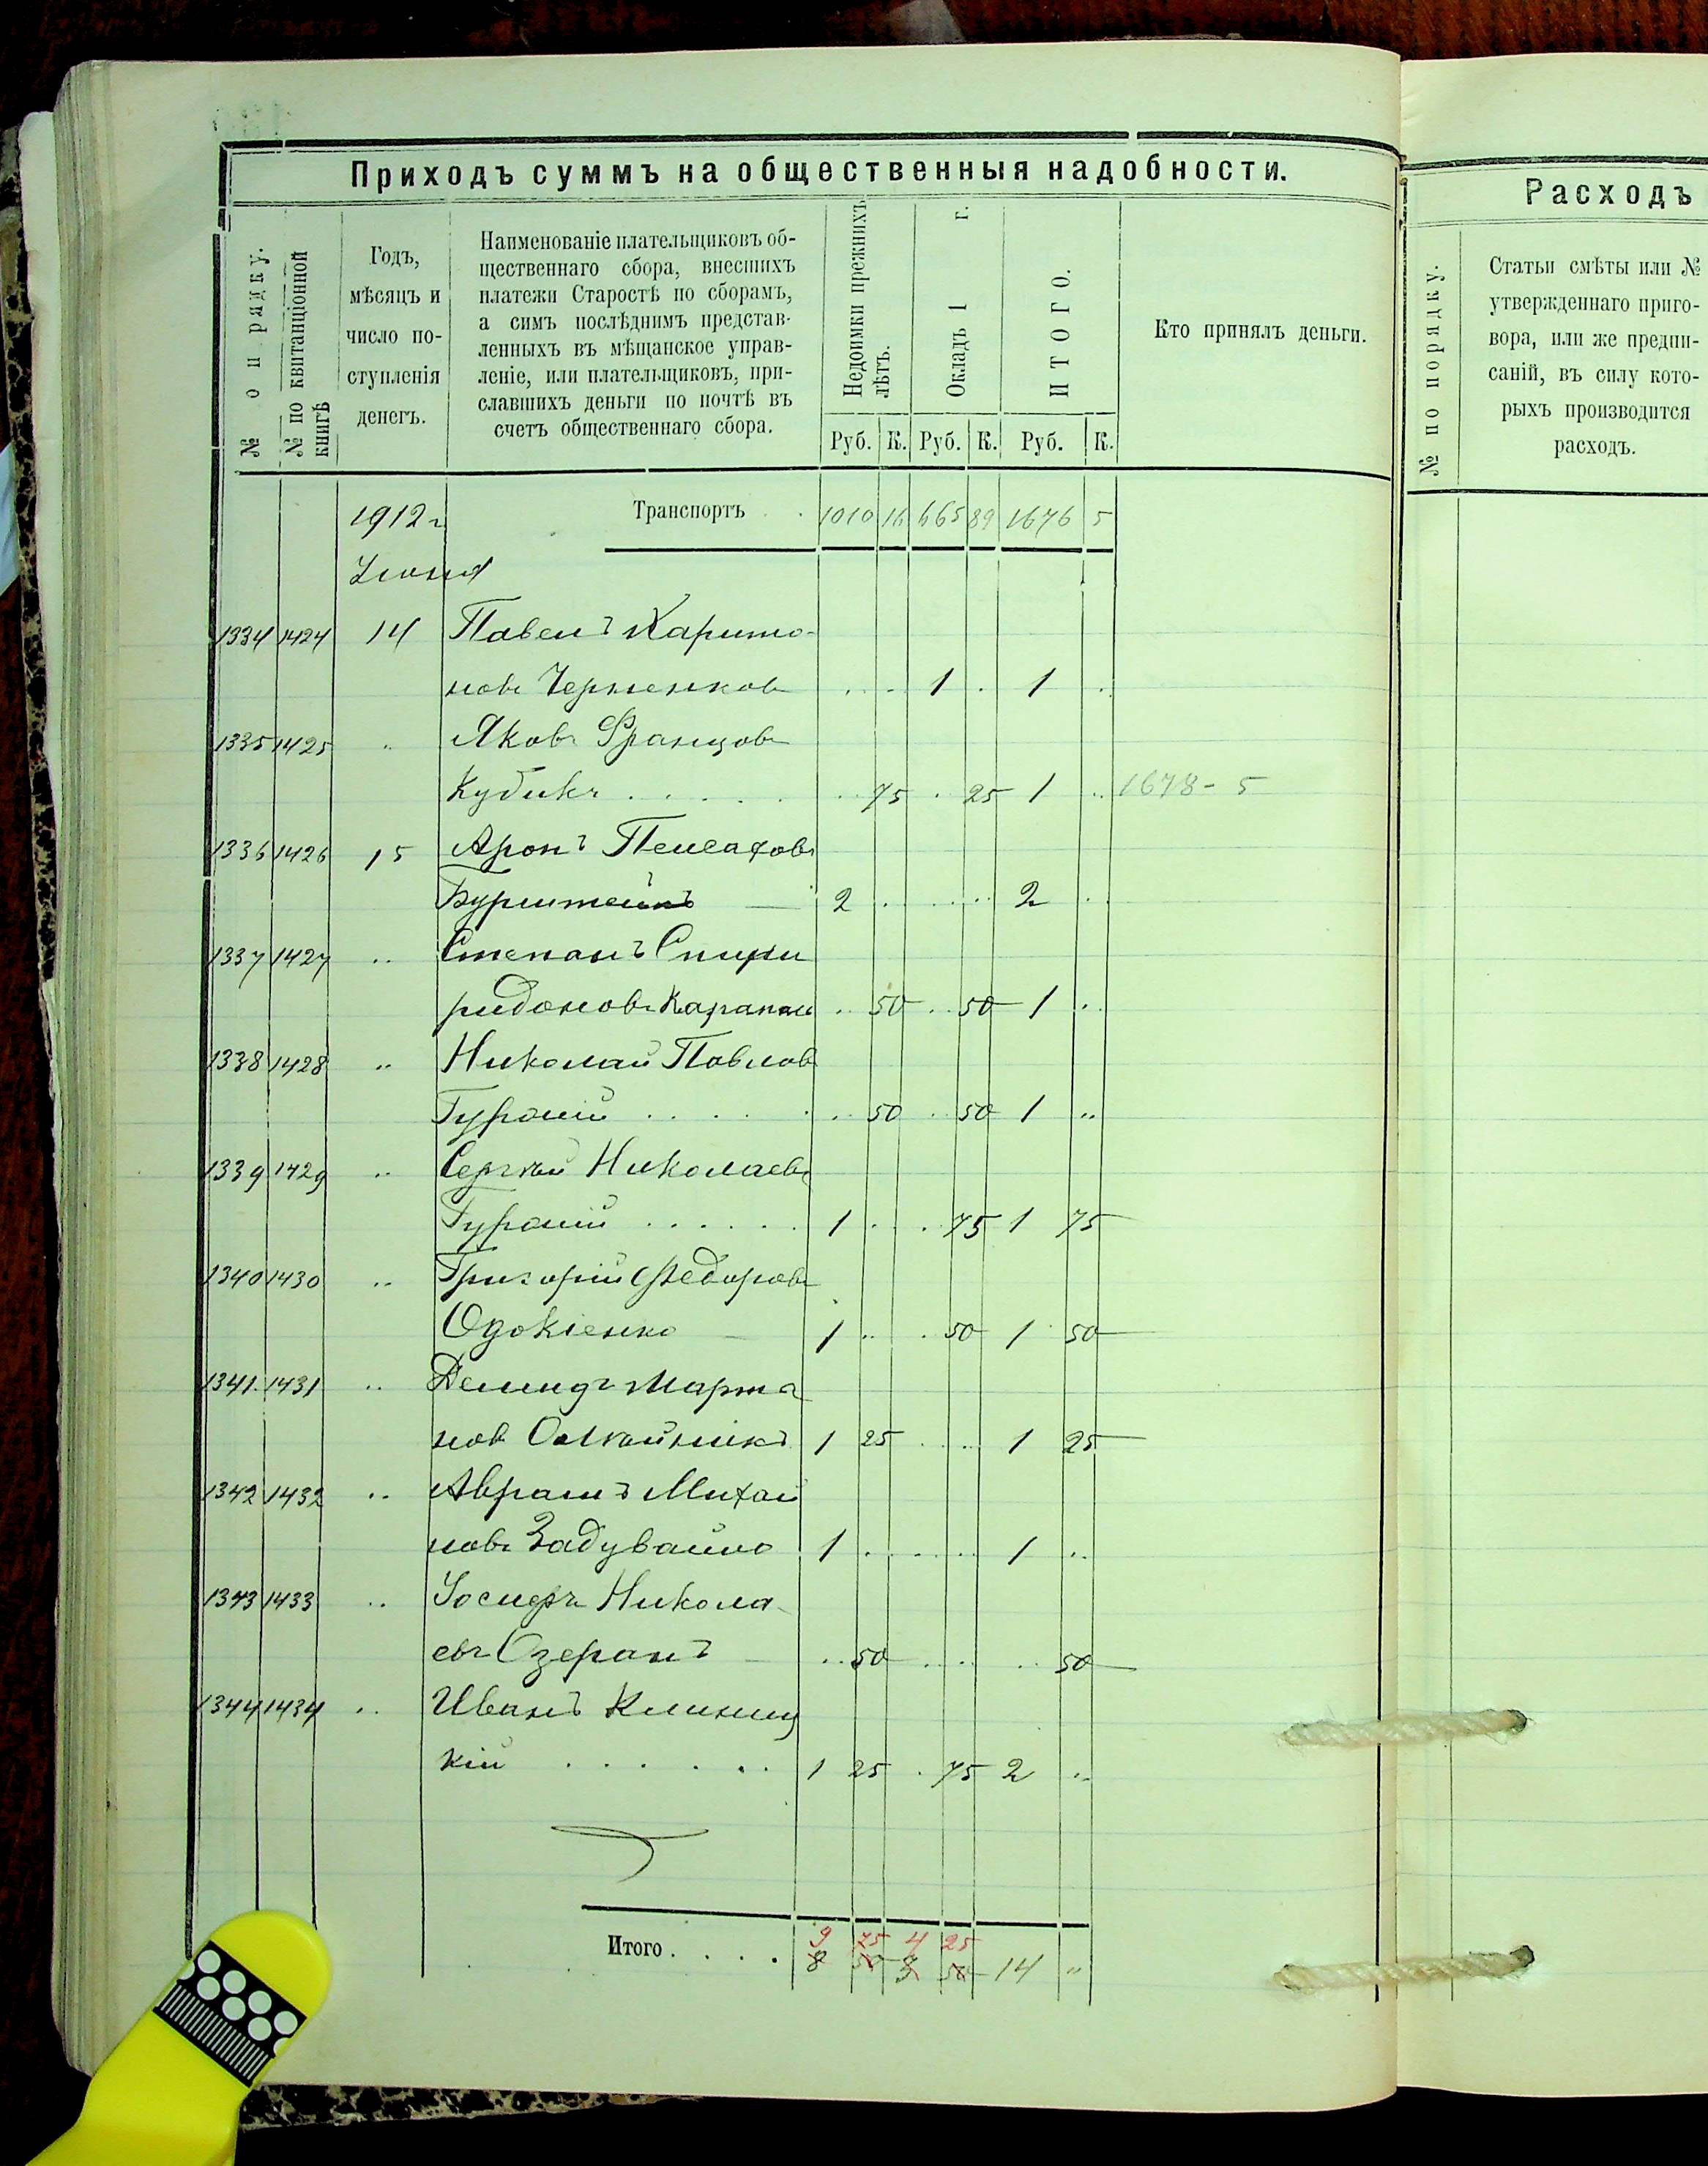 Приходъ суммъ на общественныя надобности.
№ по рядку.
№ по квитанціонной книгѣ
Годъ,
мѣсяцъ и
число по-
ступленія
денегъ.
Наименованіе плательщиковъ об-
щественнаго сбора, внесшихъ
платежи Старостѣ по сборамъ,
а симъ послѣднимъ представ-
ленныхъ въ мѣщанское управ-
леніе, или плательщиковъ, при-
славшихъ деньги по почтѣ въ
счетъ общественнаго сбора.
Недоимки прежнихъ лѣтъ.
Окладъ 1 г.
ИТОГО.
Кто принялъ деньги.
Руб. К. Руб. К. Руб. К.
1912 г Транспортъ 1010 16 665 89 1676 5
Іюня
1334 1424 14 Павелъ Харито-
новъ Черненковъ .. .. 1 . 1 ..
1335 1425 .. Яковъ Францовъ
Кубикъ . . . . . .. 75 . 25 1 .. 1678 - 5
1336 1426 15 Аронъ Пейсаховъ
Бурштейнъ — 2 . .. .. 2 ..
1337 1427 .. Степанъ Спири
ридоновъ .. 50 .. 50 1 ..
1338 1428 .. Николай Павловъ
. . . . .. 50 . 50 1 ..
1339 1429 .. Сергѣй Николаевъ
. . . . . 1 . . 75 1 75
1340 1430 .. Григорій Федоровъ
1 .. . 50 1 50
1341 1431 .. Демидъ Марта
новъ Олейникъ 1 25 .. .. 1 25
1342 1432 .. Аврамъ Михай
ловъ Задувайло 1 . .. .. 1 ..
1343 1433 .. Іосифъ Никола
евъ Озеранъ .. 50 .. .. .. 50
1344 1434 .. Иванъ Клиниц
кій . . . . . . 1 25 . 75 2 ..
9 75 4 25
Итого . . . . 8 50 3 50 14 "
Расходъ
№ по порядку.
Статьи смѣты или №
утвержденнаго приго-
вора, или же предпи-
саній, въ силу кото-
рыхъ производится
расходъ.